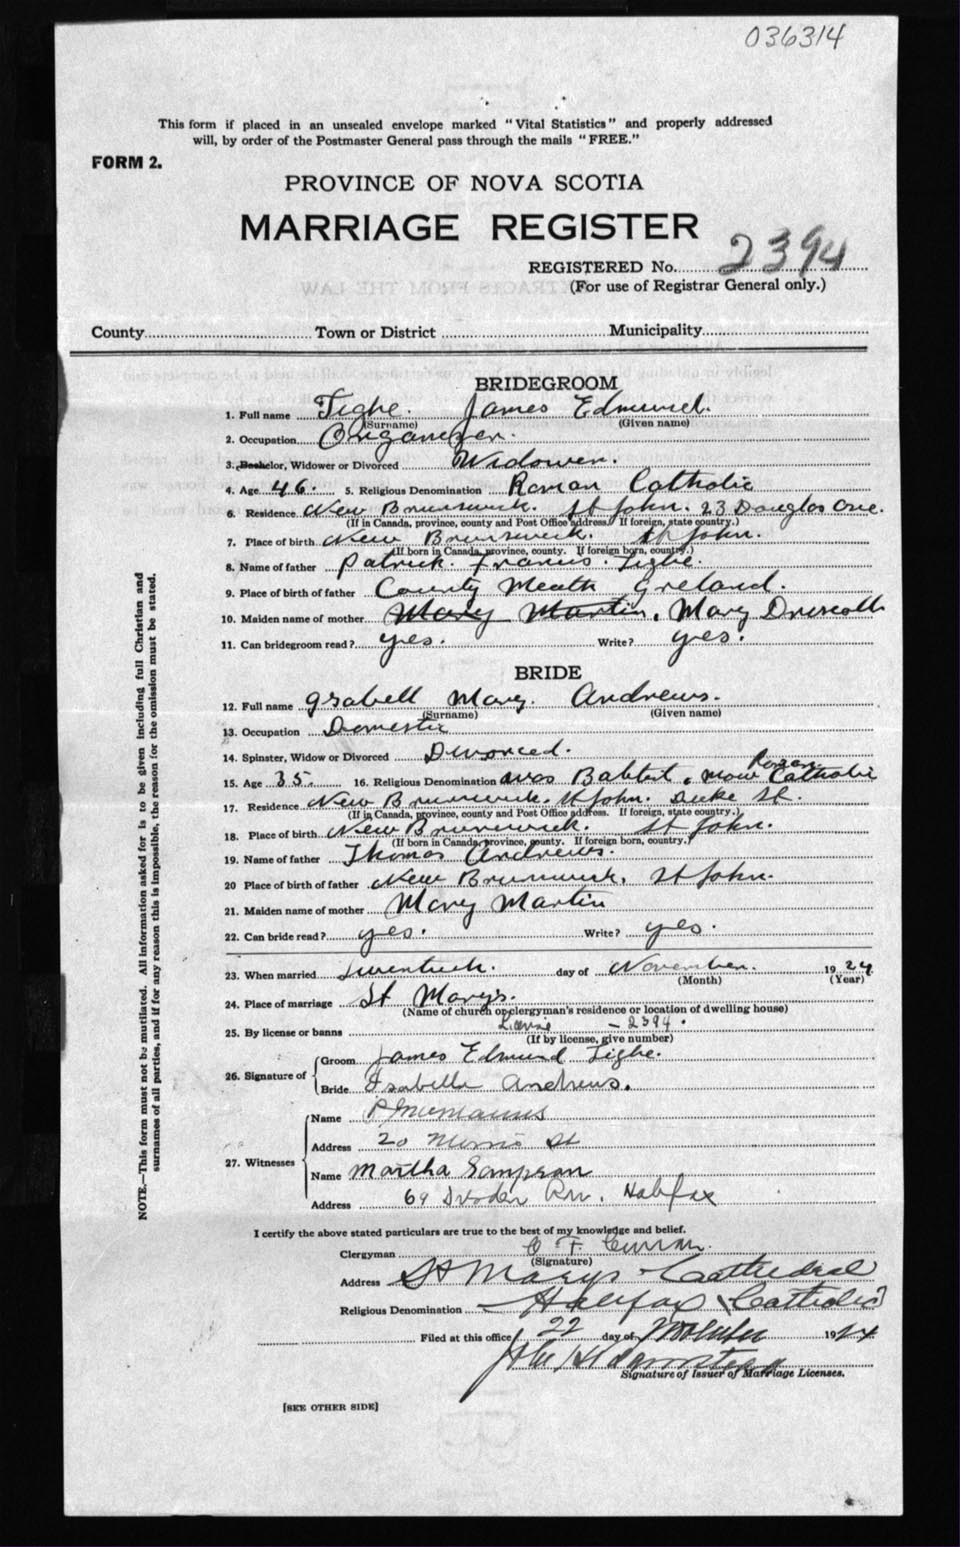 036314
This form if placed in an unsealed envelope marked "Vital Statistics" and properly addressed
will, by order of the Postmaster General pass through the mails "FREE."
FORM 2.
PROVINCE OF NOVA SCOTIA
MARRIAGE REGISTER
REGISTERED No. 2394
(For use of Registrar General only.)
County Town or District Municipality
BRIDEGROOM
1. Full name Tighe. James Edmund.
(Surname) (Given name)
2. Occupation
3. Bachelor, Widower or Divorced Widower.
4. Age 46. 5. Religious Denomination Roman Catholic
6. Residence New Brunswick. St John. 23 Douglas Ave.
(If in Canada, province, county and Post Office address. If foreign, state country.)
7. Place of birth New Brunswick. St John.
(If born in Canada, province, county. If foreign born, country.)
8. Name of father Patrick. Francis. Tighe.
9. Place of birth of father County Meath Ireland.
10. Maiden name of mother Mary Martin. Mary Driscoll
11. Can bridegroom read? yes. Write? yes.
BRIDE
12. Full name Isabell Mary. Andrews.
(Surname) (Given name)
13. Occupation Domestic
14. Spinster, Widow or Divorced Divorced.
15. Age 35. 16. Religious Denomination was Babtist, now Roman Catholic
17. Residence New Brunswick. St John. Duke St.
(If in Canada, province, county and Post Office address. If foreign, state country.)
18. Place of birth New Brunswick. St John.
(If born in Canada, province, county. If foreign born, country.)
19. Name of father Thomas Andrews.
20 Place of birth of father New Brunswick, St John.
21. Maiden name of mother Mary Martin
22. Can bride read? yes. Write? yes.
23. When married Twentieth. day of November. 1924
(Month) (Year)
24. Place of marriage St Mary's.
(Name of church or clergyman's residence or location of dwelling house)
25. By license or banns License - 2394.
(If by license, give number)
26. Signature of
Groom James Edmund Tighe.
Bride Isabella Andrews.
27. Witnesses
Name P McManus
Address 20 Morris St
Name Martha Sampson
Address 69 Halifax
I certify the above stated particulars are true to the best of my knowledge and belief.
Clergyman C F Curran.
(Signature)
Address St Marys Cathedral
Religious Denomination Halifax (Catholic)
Filed at this office 22 day of November 1924
Signature of Issuer of Marriage Licenses.
[SEE OTHER SIDE]
NOTE.—This form must not be mutilated. All information asked for is to be given including full Christian and
surnames of all parties, and if for any reason this is impossible, the reason for the omission must be stated.